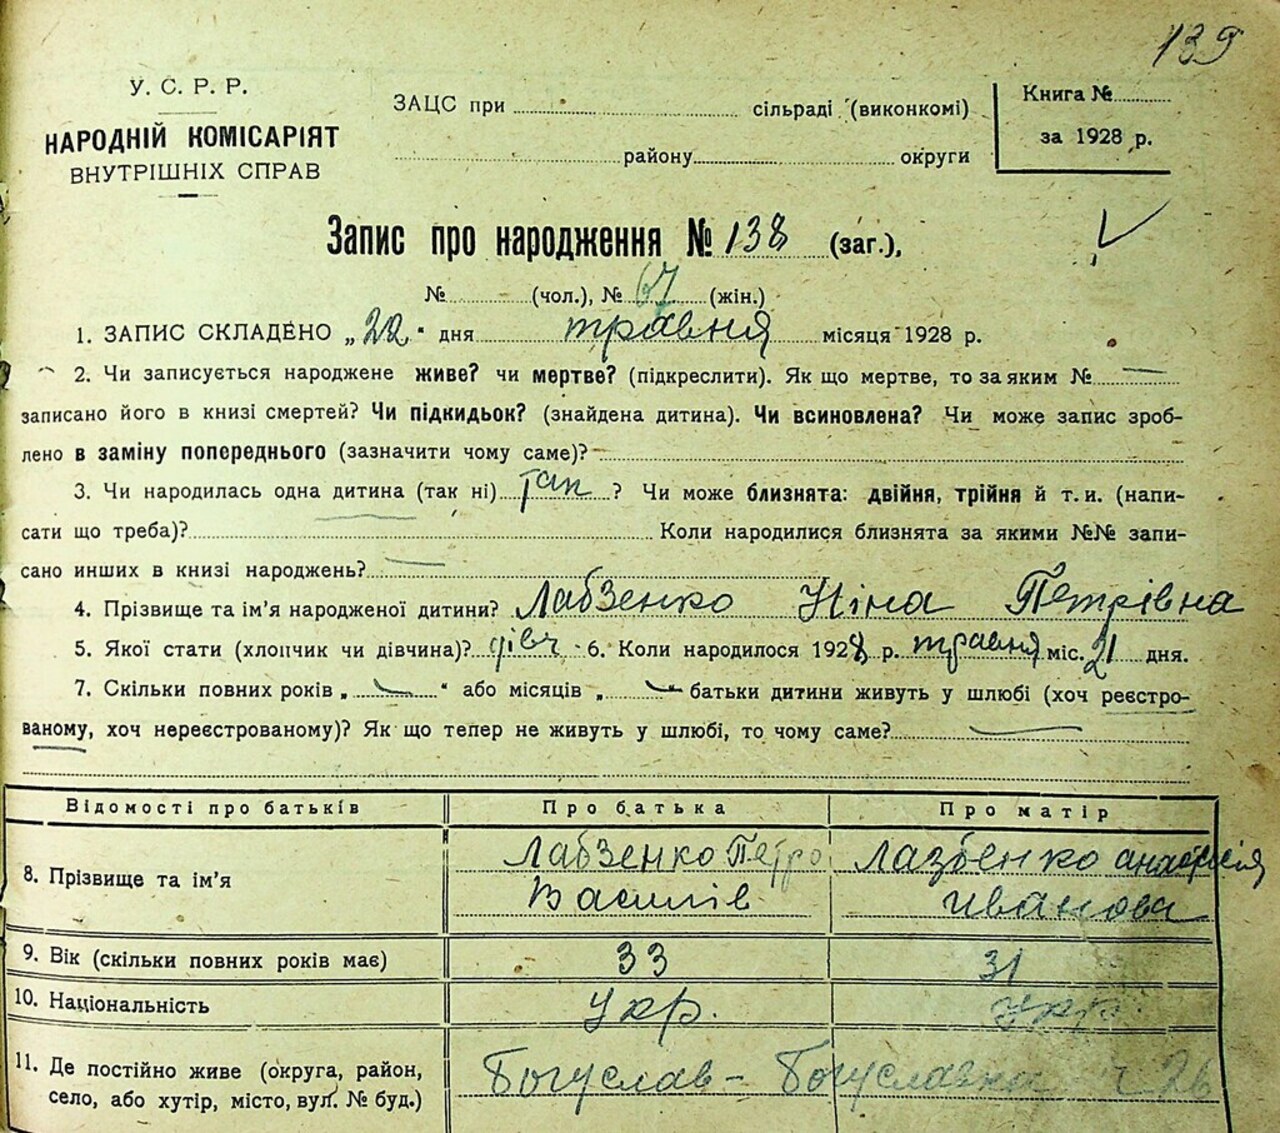 139
У. С. Р. Р.
НАРОДНІЙ КОМІСАРІЯТ
ВНУТРІШНІХ СПРАВ
ЗАЦС при сільраді (виконкомі)
району округи
Книга №
за 1928 р.
Запис про народження № 138 (заг.),
№ (чол.), № 67 (жін.)
1. ЗАПИС СКЛАДЕНО „22" дня травня місяця 1928 р.
2. Чи записується народжене живе? чи мертве? (підкреслити). Як що мертве, то за яким №
записано його в книзі смертей? Чи підкидьок? (знайдена дитина). Чи всиновлена? Чи може запис зроб-
лено в заміну попереднього (зазначити чому саме)?
3. Чи народилась одна дитина (так ні) так ? Чи може близнята: двійня, трійня й т. и. (напи-
сати що треба)? Коли народилися близнята за якими №№ запи-
сано инших в книзі народжень?
4. Прізвище та ім'я народженої дитини? Лабзенко Ніна Петрівна
5. Якої стати (хлопчик чи дівчина)? дівч 6. Коли народилося 1928 р. травня міс. 21 дня.
7. Скільки повних років „ " або місяців „ батьки дитини живуть у шлюбі (хоч реєстро-
ваному, хоч нереєстрованому)? Як що тепер не живуть у шлюбі, то чому саме?
Відомості про батьків Про батька Про матір
8. Прізвище та ім'я
Лабзенко Петро
Василів
Лазбенко Анастасія
Иванова
9. Вік (скільки повних років має) 33 31
10. Національність Укр. Укр.
11. Де постійно живе (округа, район,
село, або хутір, місто, вул. № буд.)
Богуслав – Богуславка 26